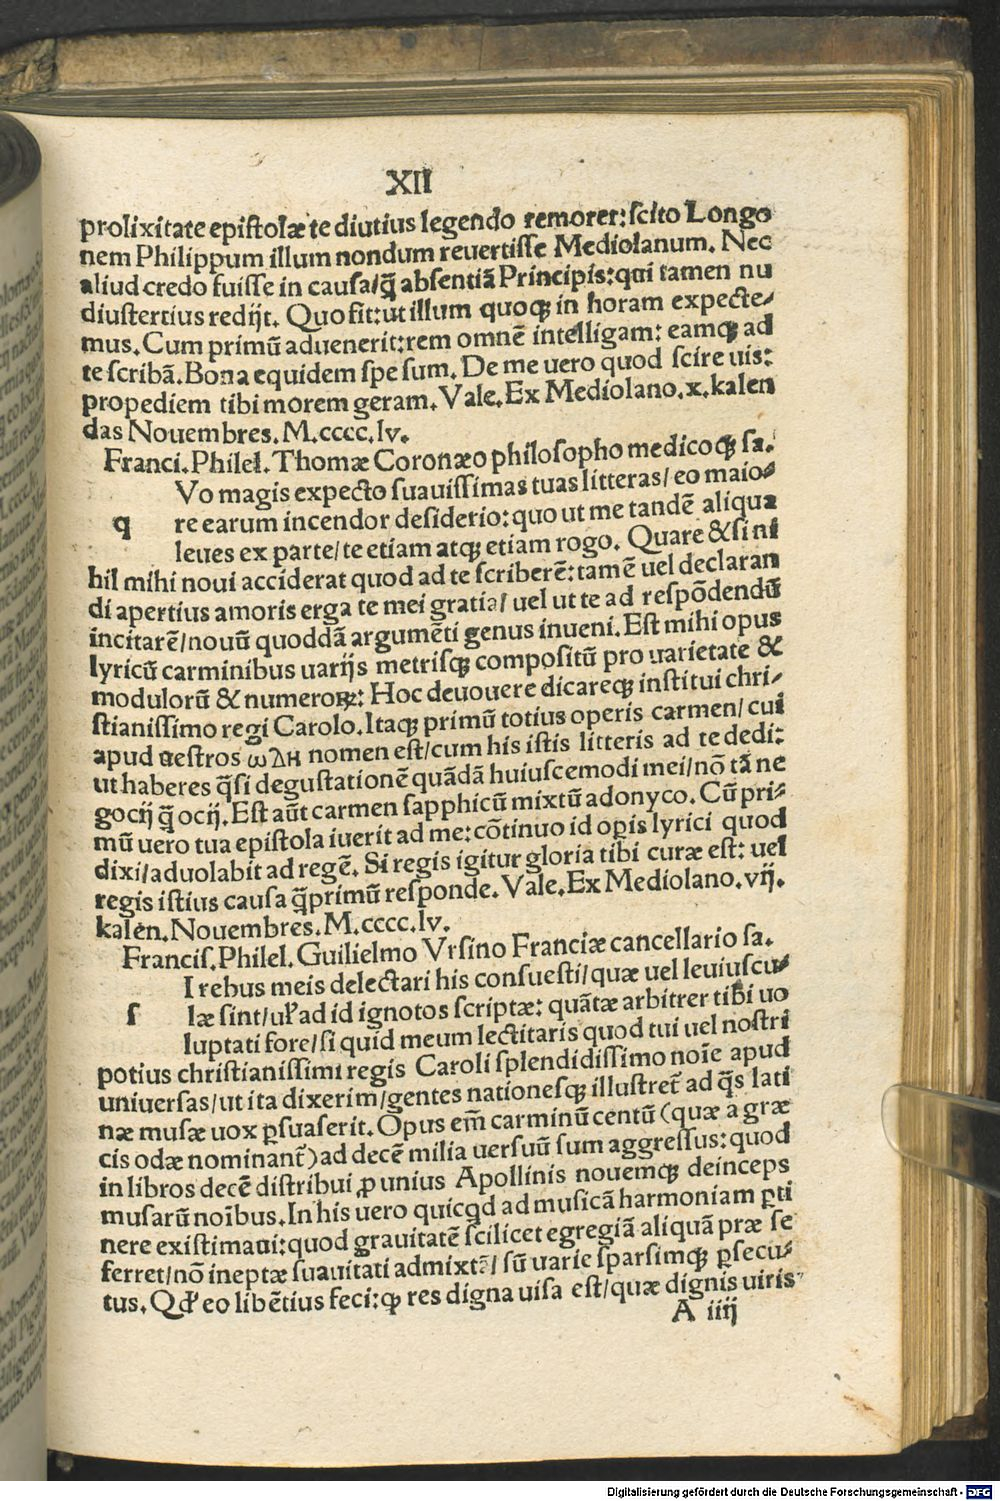 XII
prolixitate epistolæ te diutius legendo remorer: scito Longo
nem Philippum illum nondum reuertisse Mediolanum. Nec
aliud credo fuisse in causa/q̄ absentiā Principis: qui tamen nu
diustertius redijt. Quo fit: ut illum quoqꝫ in horam expecte⸗
mus. Cum primū aduenerit: rem omnē intelligam: eamqꝫ ad
te scribā. Bona equidem spe sum. De me uero quod scire uis:
propediem tibi morem geram. Vale. Ex Mediolano. x. kalen
das Nouembres. M.cccc.lv.
Franci. Philel. Thomæ Coronæo philosopho medicoqꝫ sa.
Vo magis expecto suauissimas tuas litteras/ eo maio⸗
q re earum incendor desiderio: quo ut me tandē aliqua
leues ex parte/ te etiam atqꝫ etiam rogo. Quare & si ni
hil mihi noui acciderat quod ad te scriberē: tamē uel declaran
di apertius amoris erga te mei gratia/ uel ut te ad respōdendū
incitarē/ nouū quoddā argumēti genus inueni. Est mihi opus
lyricū carminibus uarijs metrisqꝫ compositū pro uarietate &
modulorū & numeroꝝ: Hoc deuouere dicareqꝫ institui chri⸗
stianissimo regi Carolo. Itaqꝫ primū totius operis carmen/ cui
apud uestros ωΔΗ nomen est/ cum his istis litteris ad te dedi:
ut haberes q̄si degustationē quādā huiuscemodi mei/ nō tā ne
gocij q̄ ocij. Est aūt carmen sapphicū mixtū adonyco. Cū pri⸗
mū uero tua epistola iuerit ad me: cōtinuo id oꝑis lyrici quod
dixi/ aduolabit ad regē. Si regis igitur gloria tibi curæ est: uel
regis istius causa q̄primū responde. Vale. Ex Mediolano. vij.
kalen. Nouembres. M.cccc.lv.
Francis. Philel. Guilielmo Vrsino Franciæ cancellario sa.
I rebus meis delectari his consuesti/ quæ uel leuiuscu⸗
s læ sint/ uł ad id ignotos scriptæ: quātæ arbitrer tibi uo
luptati fore/ si quid meum lectitaris quod tui uel nostri
potius christianissimi regis Caroli splendidissimo noīe apud
uniuersas/ ut ita dixerim/ gentes nationesqꝫ illustret̄ ad q̄s lati
næ musæ uox ꝑsuaserit. Opus em̄ carminū centū (quæ a græ
cis odæ nominant̄) ad decē milia uersuū sum aggressus: quod
in libros decē distribui ꝓ unius Apollinis nouemqꝫ deinceps
musarū noībus. In his uero quicqd ad musicā harmoniam ꝑti
nere existimaui: quod grauitatē scilicet egregiā aliquā præ se
ferret/ nō ineptæ suauitati admixtā/ sū uarie sparsimqꝫ ꝑsecu⸗
tus. Qđ eo libētius feci: ꝙ res digna uisa est/ quæ dignis uiris
A iiij
Digitalisierung gefördert durch die Deutsche Forschungsgemeinschaft - DFG